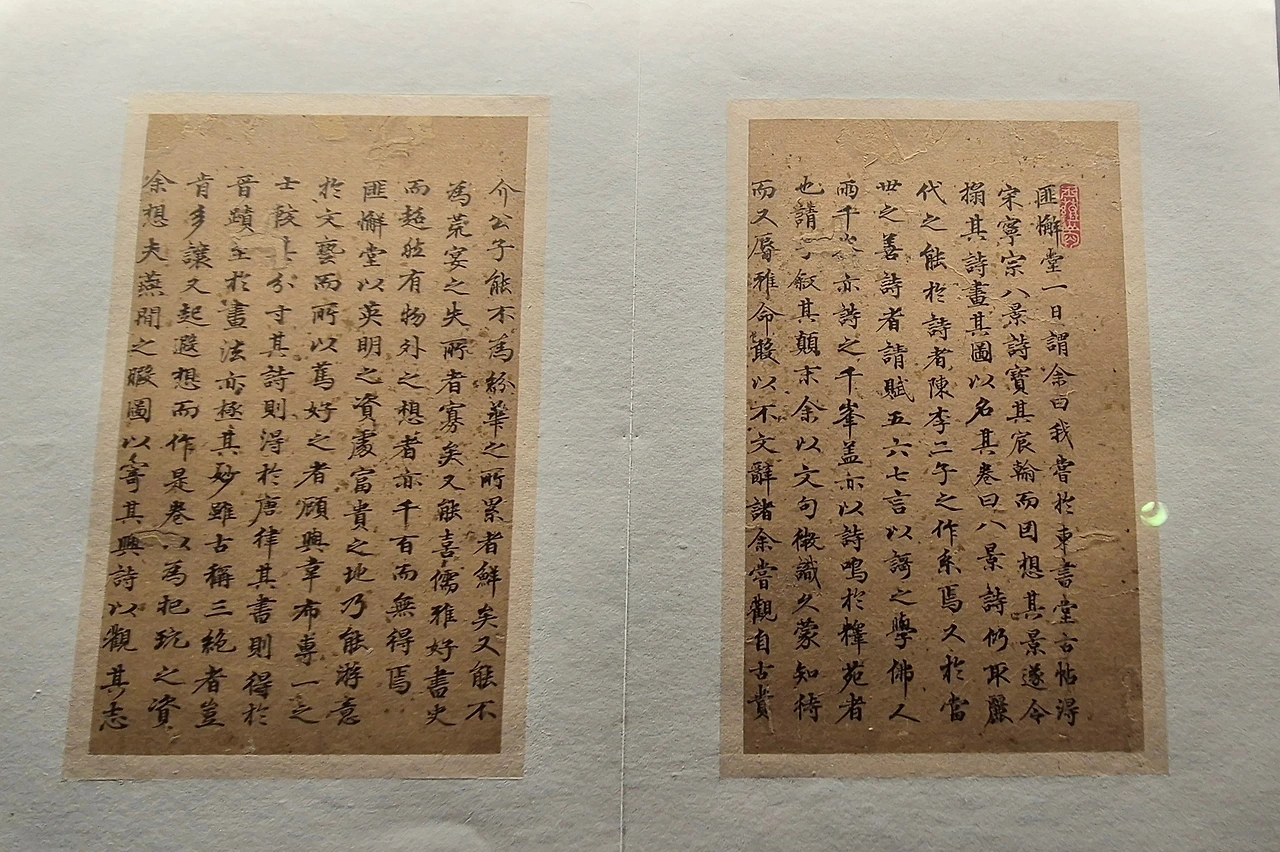 匪懈堂一日謂余曰我嘗於東書堂古帖得
宋寧宗八景詩寶其宸翰而因想其景遂令
搨其詩畫其圖以名其卷曰八景詩仍取麗
代之能於詩者陳李二子之作系焉又於當
世之善詩者請賦五六七言以謌之學佛人
而千亦詩之千峯盖亦以詩鳴於釋苑者
也請叙其顛末余以文句微識久蒙知待
而又辱雅命敢以不文辭諸余嘗觀自古貴
介公子能不為紛華之所累者鮮矣又能不
為荒宴之失所者寡矣又能喜儒雅好書史
而超然有物外之想者亦千百而無得焉
匪懈堂以英明之資處富貴之地乃能游意
於文藝而所以篤好之者顧與韋布專一之
士較分寸其詩則得於唐律其書則得於
晉蹟至於畫法亦極其妙雖古稱三絶者豈
肯多讓又起遐想而作是卷以為把玩之資
余想夫燕閒之暇圖以寄其興詩以觀其志